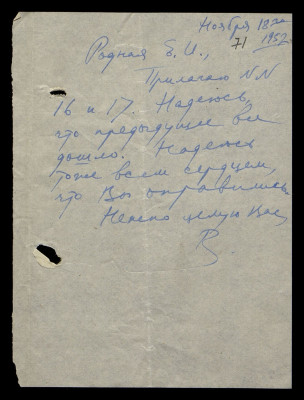 Ноября 18го
71 1952
Родная Е. И.,
Прилагаю NN
16 и 17. Надеюсь,
что предыдущие все
дошло. Надеюсь
тоже всем сердцем,
что Вы оправились.
Нежно целую Вас,